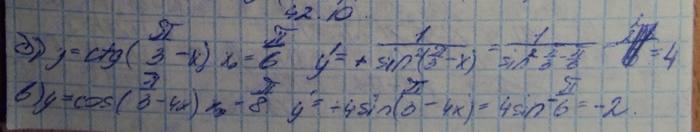 42.10.
б) y=ctg(π/3-x) x₀=π/6 y'=+1/sin²(π/3-x)=1/sin² π/3-π/6 =4
в) y=cos(π/3-4x) x₀=π/8 y'=-4sin(π/3-4x)=4sin-π/6=-2.